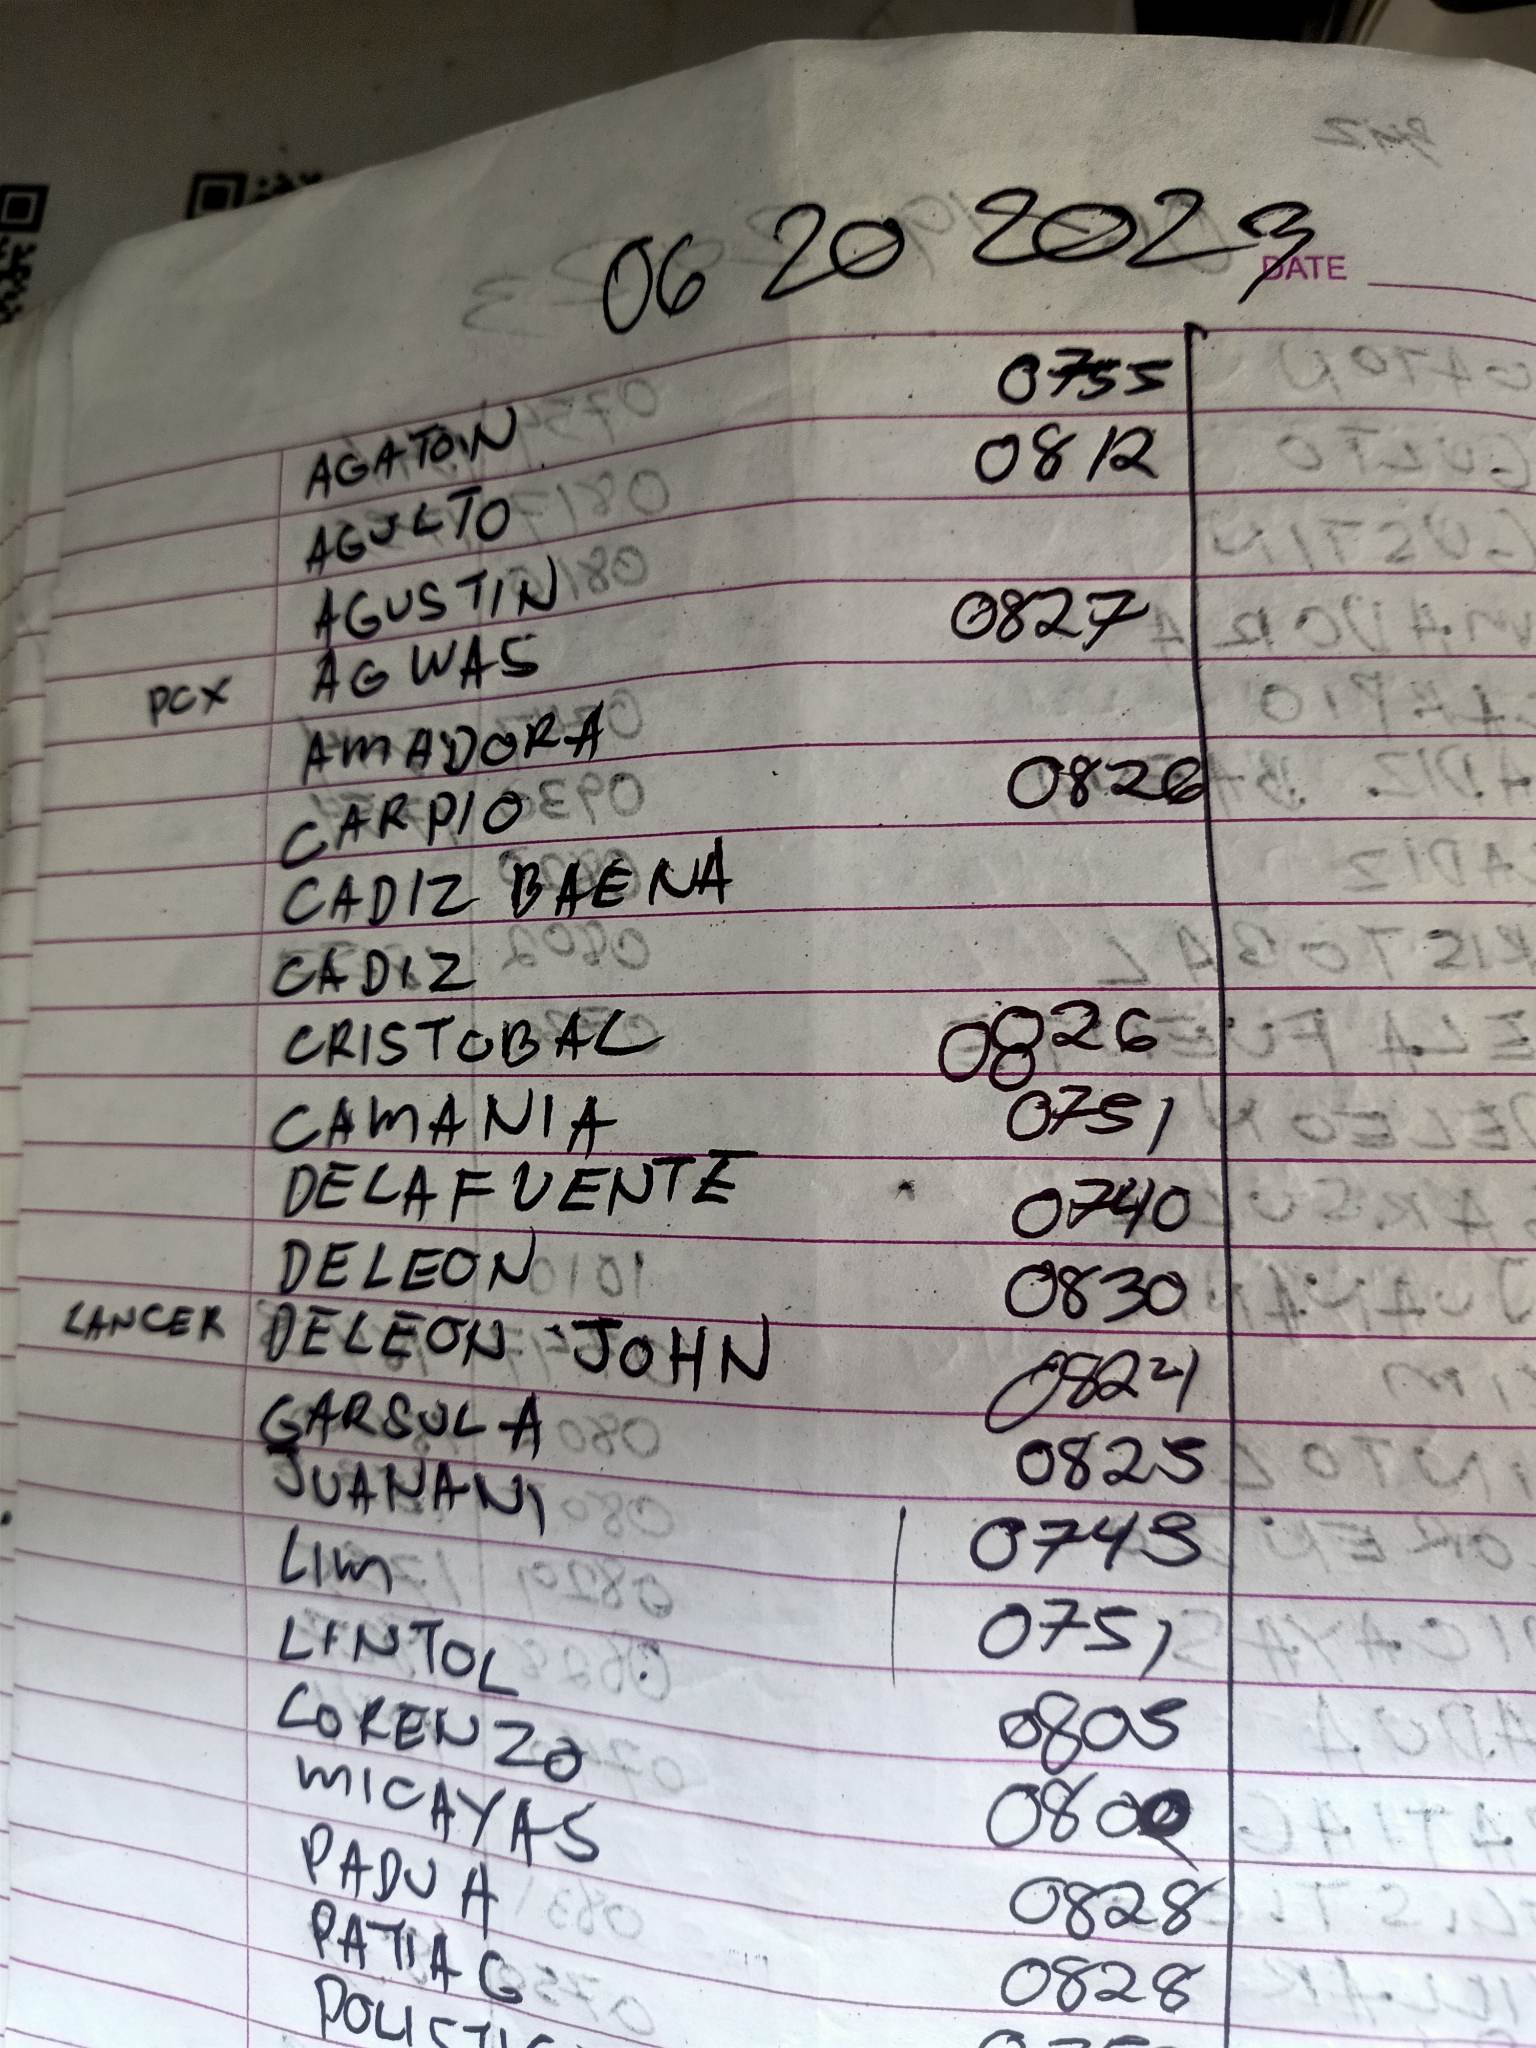 06 20 2023
DATE
AGATON 0755
AGULTO 0812
AGUSTIN
PCX AGWAS 0827
AMADORA
CARPIO 0826
CADIZ BAENA
CADIZ
CRISTOBAL 0826
CAMANIA 0751
DELAFUENTE 0740
DELEON 0830
LANCER DELEON JOHN 0824
GARSULA 0825
JUANANI 0745
LIM 0751
LINTOL 0805
LORENZO 0800
MICAYAS 0828
PADUA 0828
PATIAG